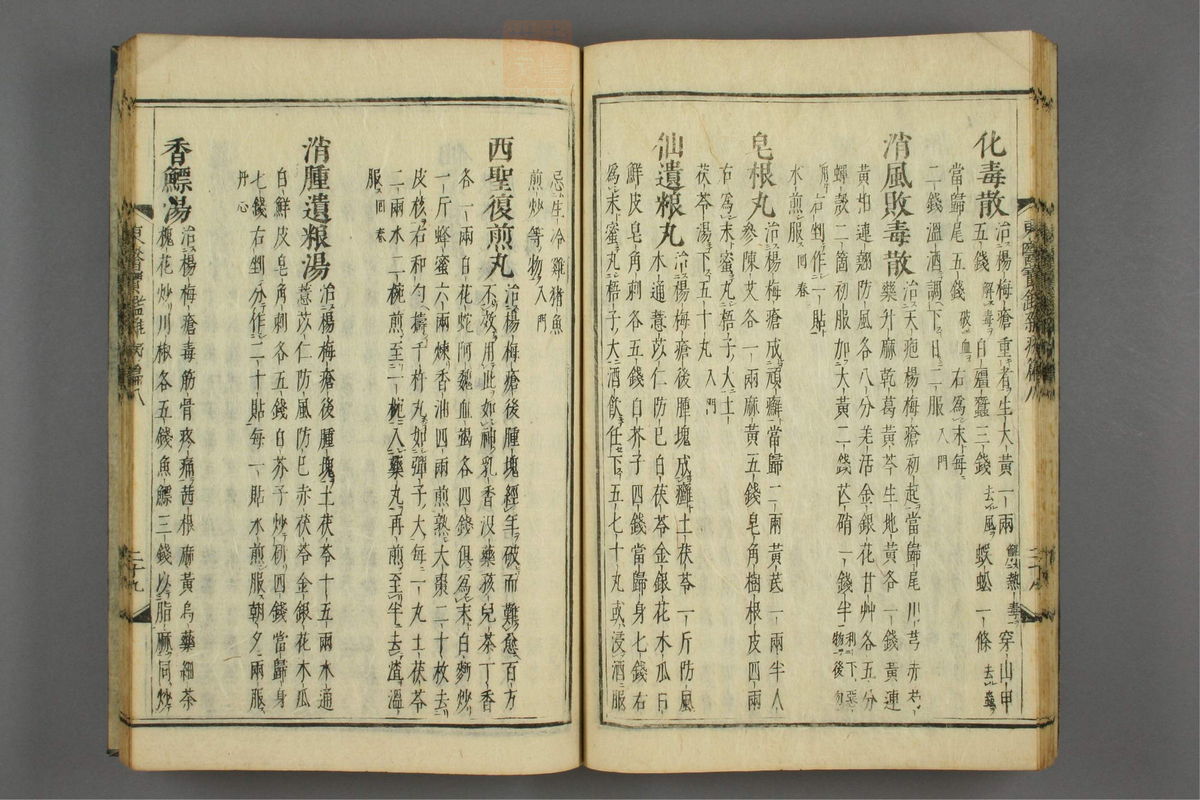 化毒散 治楊梅瘡重者生大黃一兩 解熱毒 穿山甲
五錢 解毒 白殭蠶三錢 去風 蜈蚣一條 去蟲
當歸尾五錢 破血 右爲末每
二錢溫酒調下日二服 入門
消風敗毒散 治天疱楊梅瘡初起當歸尾川芎赤芍
藥升麻乾葛黃芩生地黃各一錢黃連
黃栢連翹防風各八分羌活金銀花甘艸各五分
蟬殼二箇初服加大黃二錢芒硝一錢半 利下惡物後勿
用 右剉作一貼
水煎服 回春
皂根丸 治楊梅瘡成頑癬當歸二兩黃芪一兩半人
參陳艾各一兩麻黃五錢皂角樹根皮四兩
右爲末蜜丸梧子大土
茯苓湯下五十丸 入門
仙遺粮丸 治楊梅瘡後腫塊成癰土茯苓一斤防風
木通薏苡仁防巳白茯苓金銀花木瓜白
鮮皮皂角刺各五錢白芥子四錢當歸身七錢右
爲末蜜丸梧子大酒飮任下五七十丸或浸酒服
忌生冷雞猪魚
煎炒等物 入門
西聖復煎丸 治楊梅瘡後腫塊經年破而難愈百方
不效用此如神乳香沒藥孩兒茶丁香
各一兩白花蛇阿魏血竭各四錢俱爲末白麪炒
一斤蜂蜜六兩煉香油四兩煎熟大棗二十枚去
皮核右和勻擣千杵丸如彈子大每一丸土茯苓
二兩水二椀煎至一椀入藥丸再煎至半去渣溫
服 回春
消腫遺粮湯 治楊梅瘡後腫塊土茯苓十五兩木通
薏苡仁防風防巳赤茯苓金銀花木瓜
白鮮皮皂角刺各五錢白芥子炒硏四錢當歸身
七錢右剉分作二十貼每一貼水煎服朝夕兩服
丹心
香鰾湯 治楊梅瘡毒筋骨疼痛茜根麻黃烏藥細茶
槐花炒川椒各五錢魚鰾三錢以脂麻同炒
東醫寶鑑雜病編八
二十九